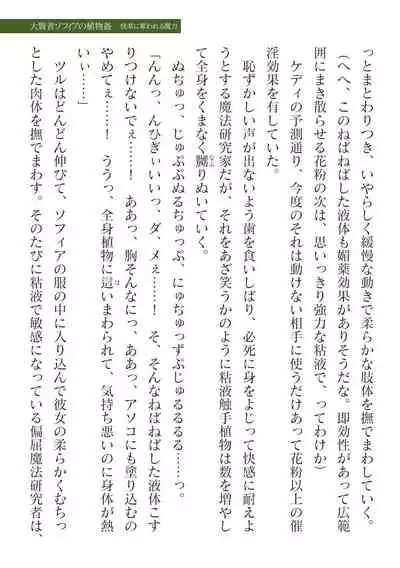 大賢者ソフィアの植物姦　快楽に奪われる魔力
っとまとわりつき、いやらしく緩慢な動きで柔らかな肢体を撫でまわしていく。
（へへ、このねばねばした液体も媚薬効果がありそうだな。即効性があって広範
囲にまき散らせる花粉の次は、思いっきり強力な粘液で、ってわけか）
ケディの予測通り、今度のそれは動けない相手に使うだけあって花粉以上の催
淫効果を有していた。
恥ずかしい声が出ないよう歯を食いしばり、必死に身をよじって快感に耐えよ
うとする魔法研究家だが、それをあざ笑うかのように粘液触手植物は数を増やし
て全身をくまなく嬲りぬいていく。
ぬぢゅっ、じゅぷぷぬるちゅっぷ、にゅぢゅっずぷじゅるるるる……っ。
「んんっ、んひぎぃいいいっ、ダ、メぇ……！　そ、そんなねばねばした液体こす
りつけないでぇ……！　ああっ、胸そんなにっ、ああっ、アソコにも塗り込むの
やめてぇ……！　ううっ、全身植物に這いまわられて、気持ち悪いのに身体が熱
いぃ……」
ツルはどんどん伸びて、ソフィアの服の中に入り込んで彼女の柔らかくむちっ
とした肉体を撫でまわす。そのたびに粘液で敏感になっている偏屈魔法研究者は、